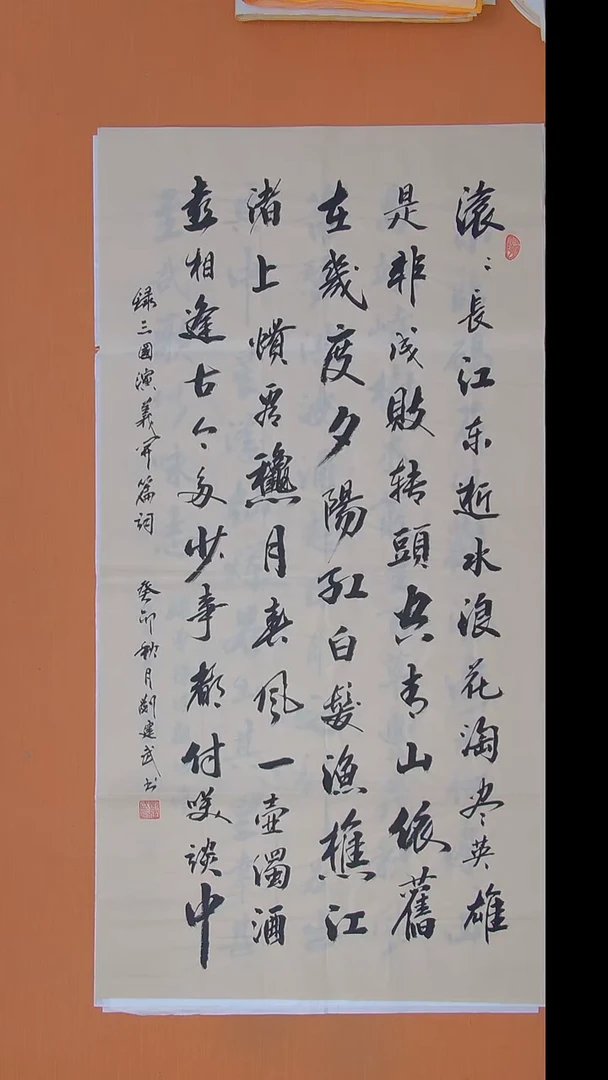 滚〻長江东逝水浪花淘尽英雄
是非成敗转頭空青山依舊
在幾度夕陽红白髮渔樵江
渚上惯看龝月春风一壶濁酒
喜相逢古今多少事都付笑談中
録三國演義开篇词 癸卯秋月劉建武书